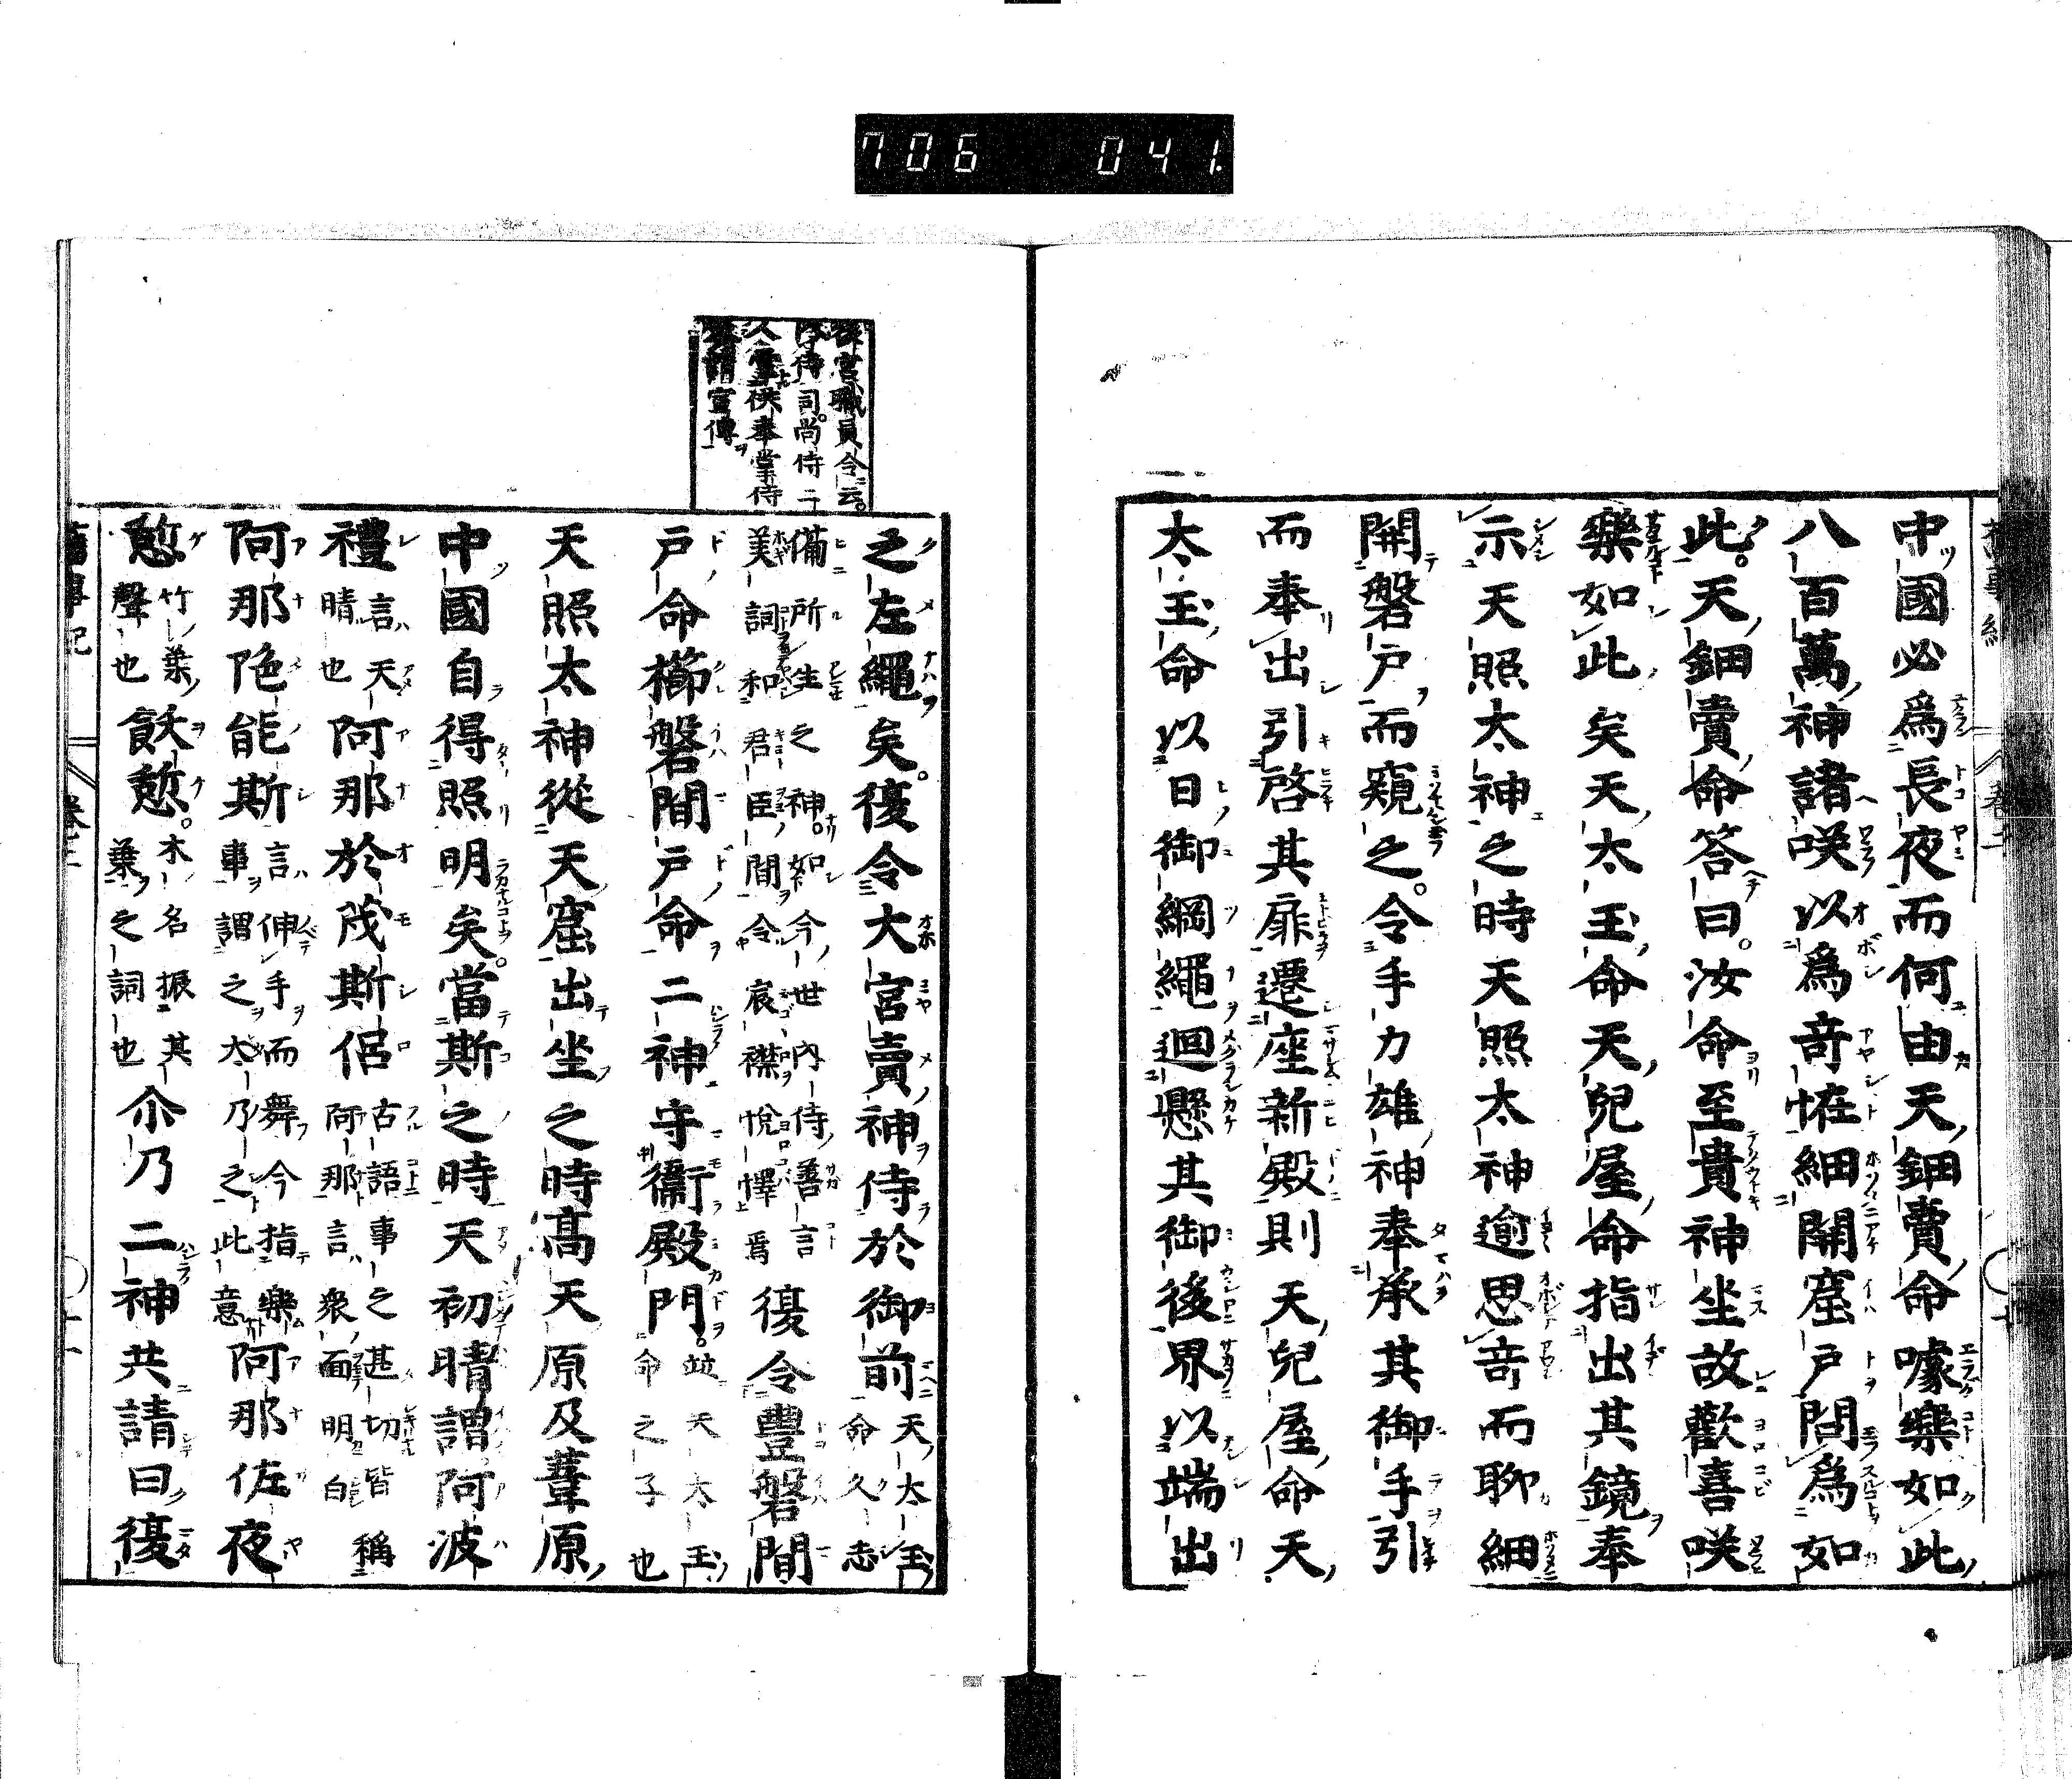 706 041
中國必爲長夜而何由天鈿賣命㘌樂如此
八百萬神諸咲以爲竒恠細開窟戸問爲如
此天鈿賣命答曰汝命至貴神坐故歡喜咲
樂如此矣天太玉命天兒屋命指出其鏡奉
示天照太神之時天照太神逾思竒而聊細
開磐戸而窺之令手力雄神奉承其御手引
而奉出引啓其扉遷座新殿則天兒屋命天
太玉命以日御綱繩迴懸其御後界以端出
職員令云
侍司尚侍二
人
供奉掌侍
宣傳
之左繩矣復令大宮賣神侍於御前
天太玉
命久志
備所生之神如今世內侍善言
美詞和君臣間令哀襟悅懌焉
復令豐磐間
戸命櫛磐間戸命二神守衞殿門
竝天太玉
命之子也
天照太神從天窟出坐之時高天原及葦原
中國自得照明矣當斯之時天初晴謂阿波
禮
言天
晴也
阿那於茂斯侶
古語事之甚切皆稱
阿那言衆面明白
阿那陁能斯
言伸手而舞今指樂
事謂之太乃之此意
阿那佐夜
憩
竹葉
聲也
飫憩
木名振其
葉之詞也
尒乃二神共請曰復